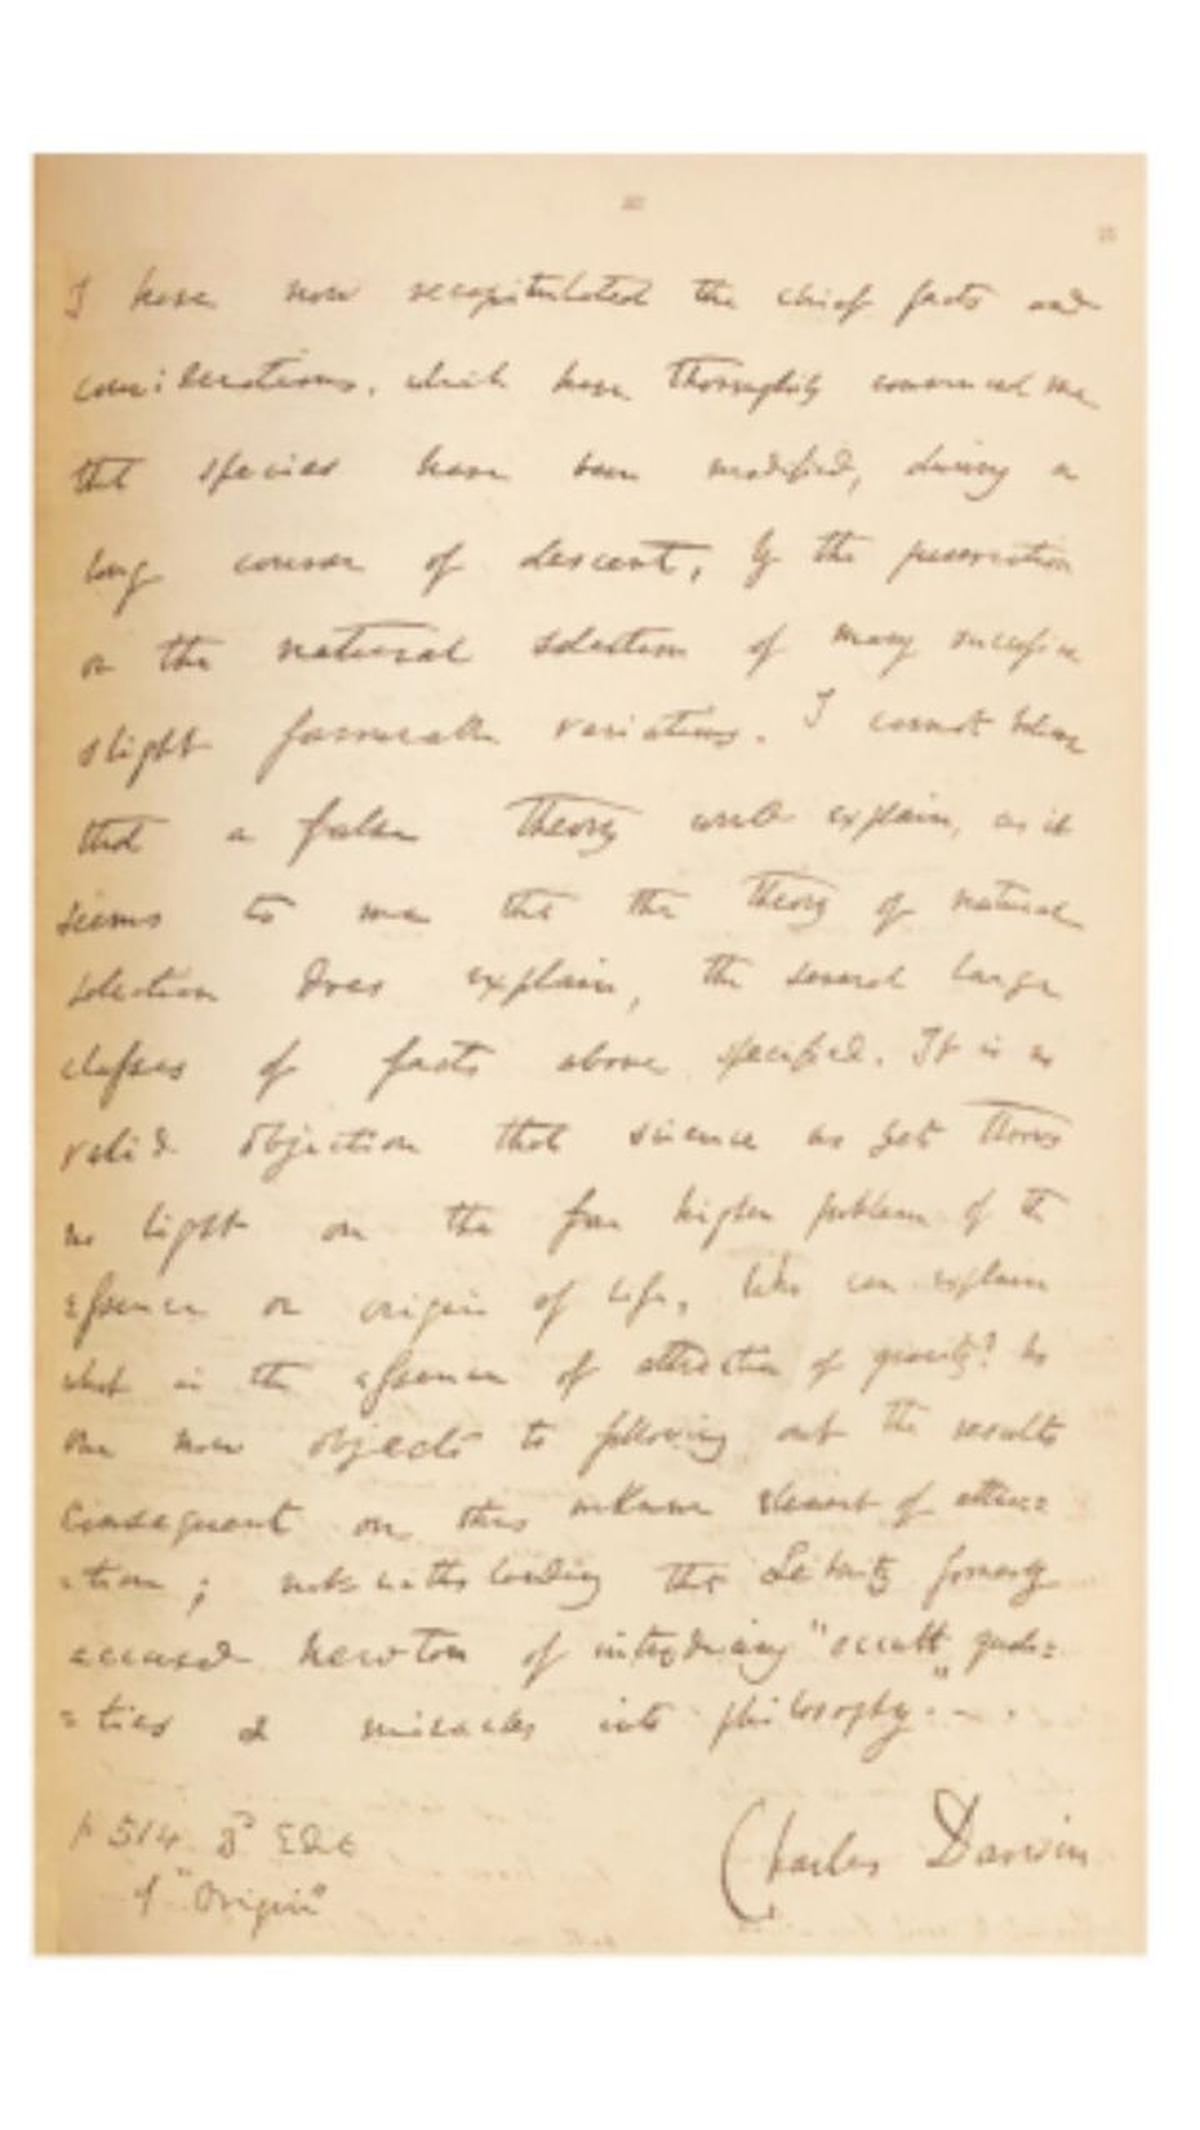 I have now recapitulated the chief facts and
considerations, which have thoroughly convinced me
that species have been modified, during a
long course of descent, by the preservation
or the natural selection of many successive
slight favourable variations. I cannot believe
that a false theory would explain, as it
seems to me that the theory of natural
selection does explain, the several large
classes of facts above specified. It is no
valid objection that science as yet throws
no light on the far higher problem of the
essence or origin of life. Who can explain
what is the essence of attraction of gravity? No
one now objects to following out the results
consequent on this unknown element of attrac=
=tion; notwithstanding that Leibnitz formerly
accused Newton of introducing "occult quali=
=ties & miracles into philosophy."—.
Charles Darwin
p 514. 3d Edit
of "Origin"